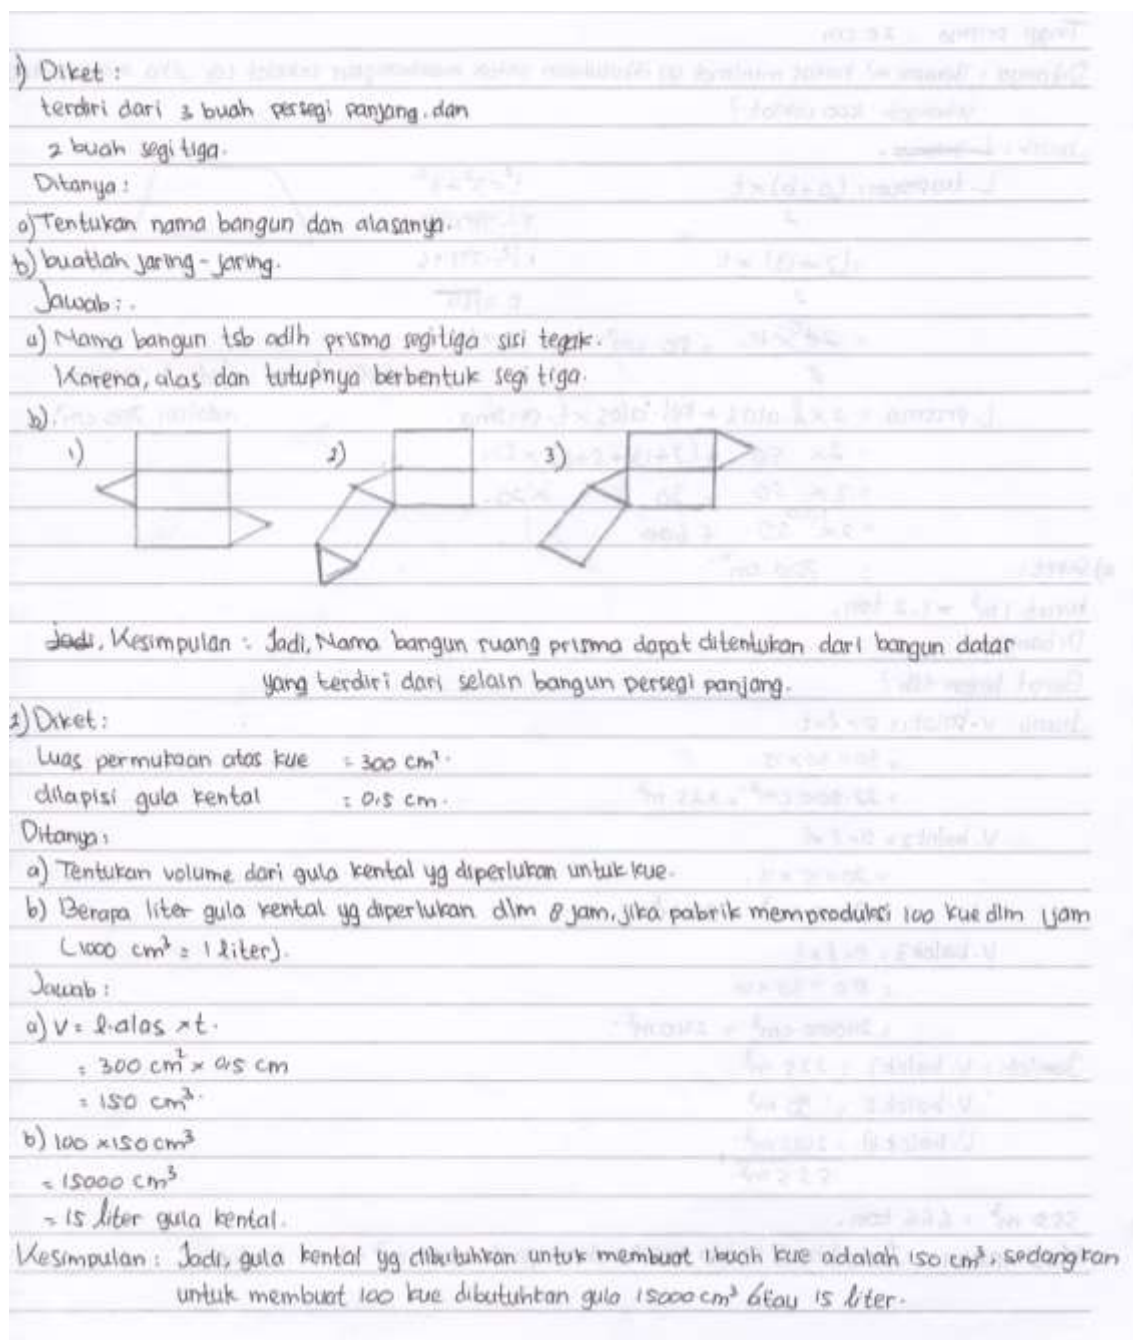 1) Diket :
terdiri dari 3 buah persegi panjang. dan
2 buah segi tiga.
Ditanya :
a) Tentukan nama bangun dan alasanya.
b) buatlah jaring-jaring.
Jawab : .
a) Nama bangun tsb adlh prisma segitiga sisi tegak.
Karena, alas dan tutupnya berbentuk segi tiga.
b)
1) 2) 3)
Jadi, Kesimpulan : Jadi, Nama bangun ruang prisma dapat ditentukan dari bangun datar
yang terdiri dari selain bangun persegi panjang.
2) Diket :
Luas permukaan atas kue = 300 cm².
dilapisi gula kental : 0.5 cm.
Ditanya :
a) Tentukan volume dari gula kental yg diperlukan untuk kue.
b) Berapa liter gula kental yg diperlukan dlm 8 jam, jika pabrik memproduksi 100 kue dlm 1 jam
(1000 cm³ = 1 liter).
Jawab :
a) V = l.alas × t.
= 300 cm² × 0.5 cm
= 150 cm³.
b) 100 × 150 cm³
= 15000 cm³
= 15 liter gula kental.
Kesimpulan : Jadi, gula kental yg dibutuhkan untuk membuat 1 buah kue adalah 150 cm³, sedangkan
untuk membuat 100 kue dibutuhkan gula 15000 cm³ atau 15 liter.